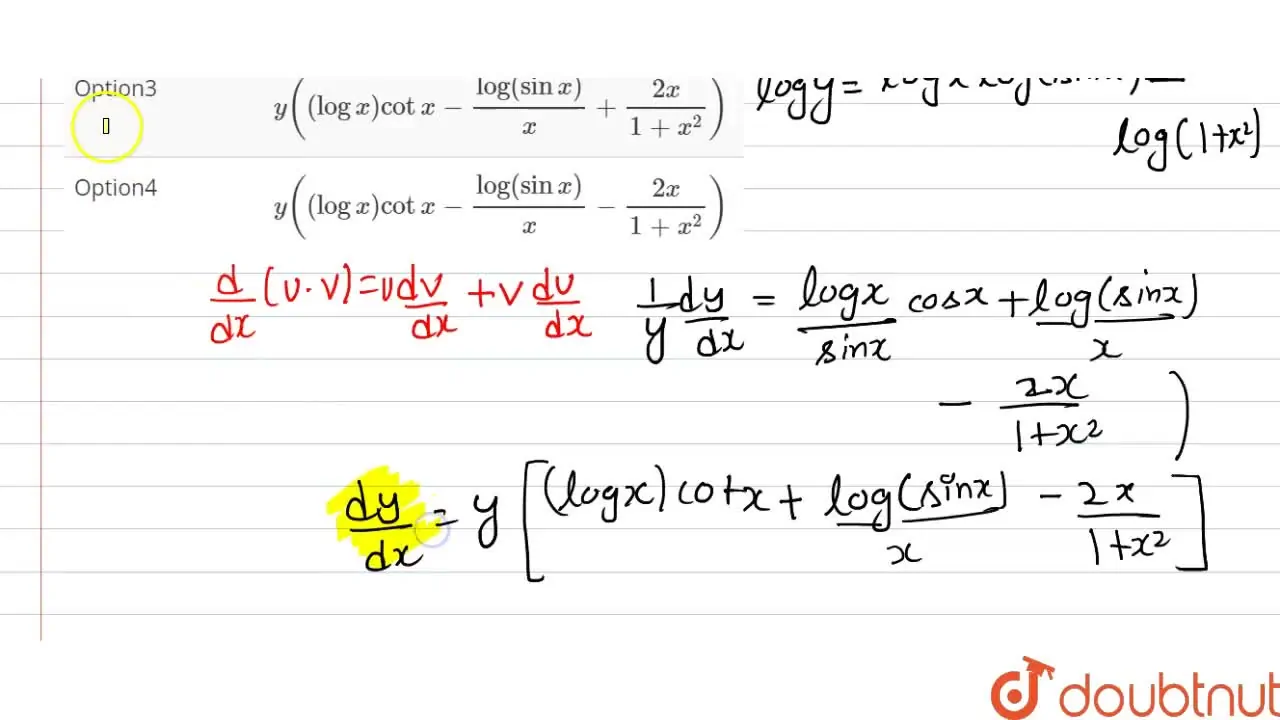 Option3 y((log x)cot x − log(sin x)/x + 2x/(1 + x²))
log y = log x log(sin x) −
log(1+x²)
Option4 y((log x)cot x − log(sin x)/x − 2x/(1 + x²))
d/dx (u·v) = u dv/dx + v du/dx
1/y dy/dx = log x/sin x cos x + log(sin x)/x
− 2x/(1+x²) )
dy/dx = y [(log x) cot x + log(sin x)/x − 2x/(1+x²)]
doubtnut